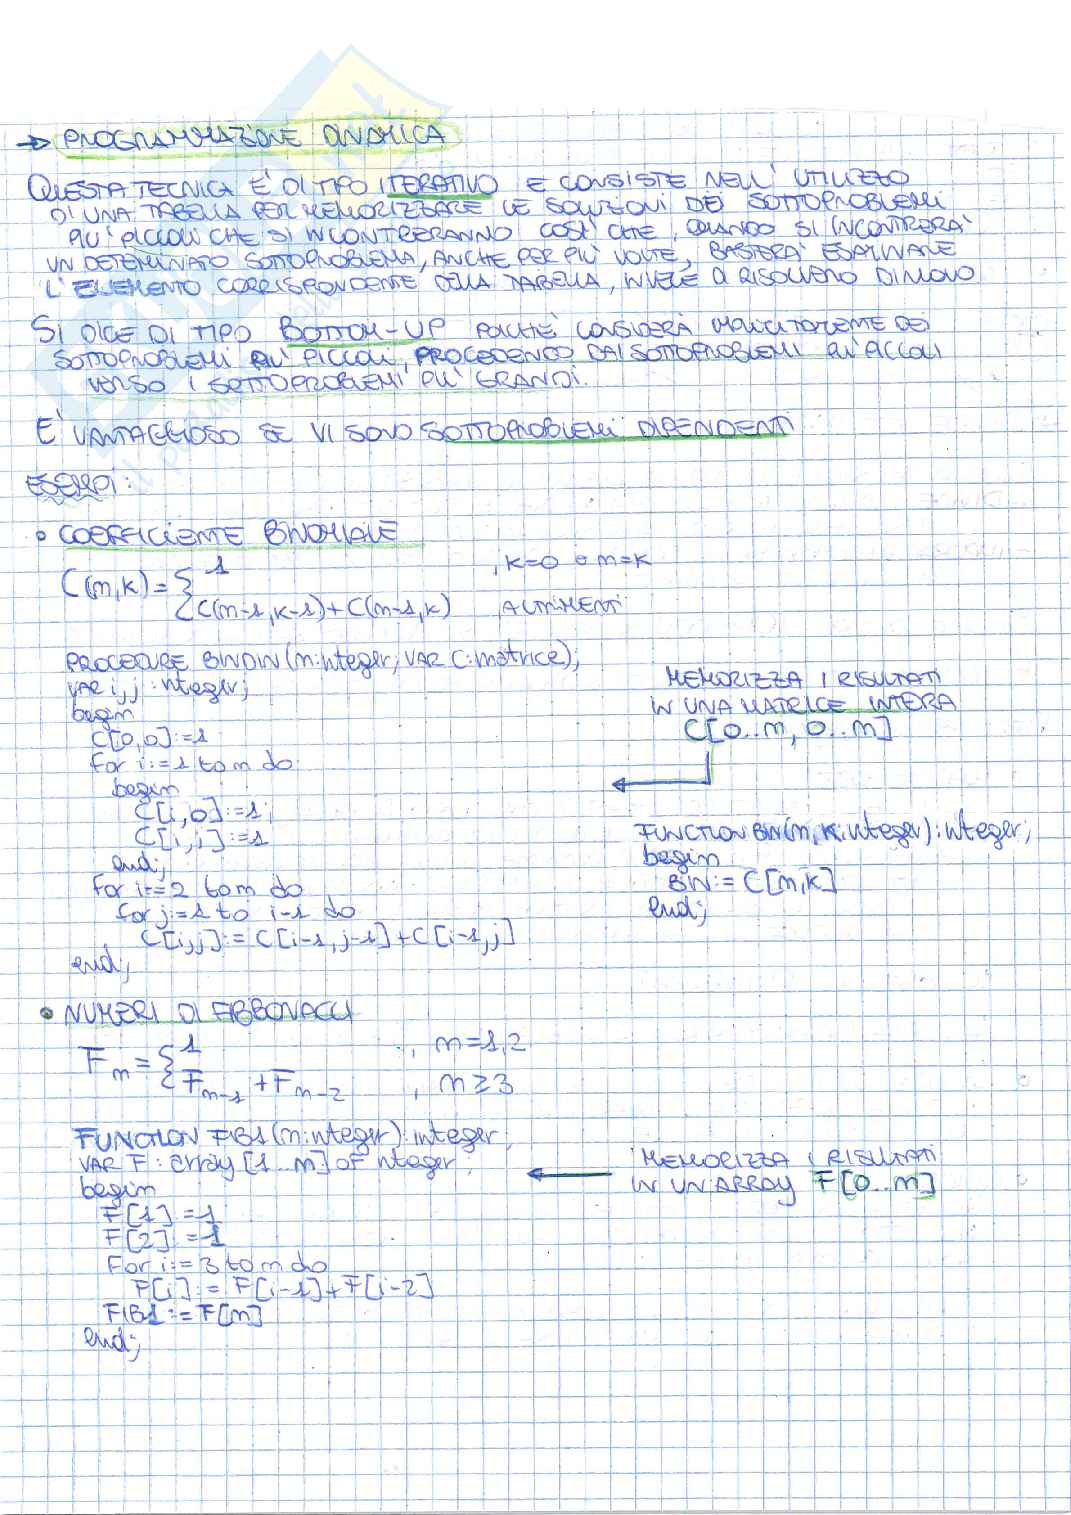 → PROGRAMMAZIONE DINAMICA
QUESTA TECNICA E' DI TIPO ITERATIVO E CONSISTE NELL' UTILIZZO
DI UNA TABELLA PER MEMORIZZARE LE SOLUZIONI DEI SOTTOPROBLEMI
PIU' PICCOLI CHE SI INCONTRERANNO COSI' CHE, QUANDO SI INCONTRERA'
UN DETERMINATO SOTTOPROBLEMA, ANCHE PER PIU' VOLTE, BASTERA' ESAMINARE
L'ELEMENTO CORRISPONDENTE DELLA TABELLA, INVECE DI RISOLVERLO DI NUOVO
SI DICE DI TIPO BOTTOM-UP POICHE' CONSIDERA DEI
SOTTOPROBLEMI PIU' PICCOLI, PROCEDENDO DAI SOTTOPROBLEMI PIU' PICCOLI
VERSO I SOTTOPROBLEMI PIU' GRANDI.
E' VANTAGGIOSO SE VI SONO SOTTOPROBLEMI DIPENDENTI
ESEMPI:
• COEFFICIENTE BINOMIALE
C(n,k) = { 1 , k=0 o n=k
{ C(n-1,k-1)+C(n-1,k) , ALTRIMENTI
PROCEDURE BINDIN(n:integer; VAR C:matrice);
VAR i,j:integer;
begin
C[0,0]:=1
for i:=1 to n do
begin
C[i,0]:=1;
C[i,i]:=1
end;
for i:=2 to n do
for j:=1 to i-1 do
C[i,j]:= C[i-1,j-1]+C[i-1,j]
end;
MEMORIZZA I RISULTATI
IN UNA MATRICE INTERA
C[0..n, 0..n]
FUNCTION BIN(n,k:integer):integer;
begin
BIN:= C[n,k]
end;
• NUMERI DI FIBBONACCI
Fn = { 1 , n=1,2
{ Fn-1 + Fn-2 , n≥3
FUNCTION FIB1(n:integer):integer;
VAR F: array [1..n] of integer;
begin
F[1]:=1
F[2]:=1
For i:=3 to n do
F[i]:= F[i-1]+F[i-2]
FIB1:=F[n]
end;
MEMORIZZA I RISULTATI
IN UN ARRAY F[0..n]